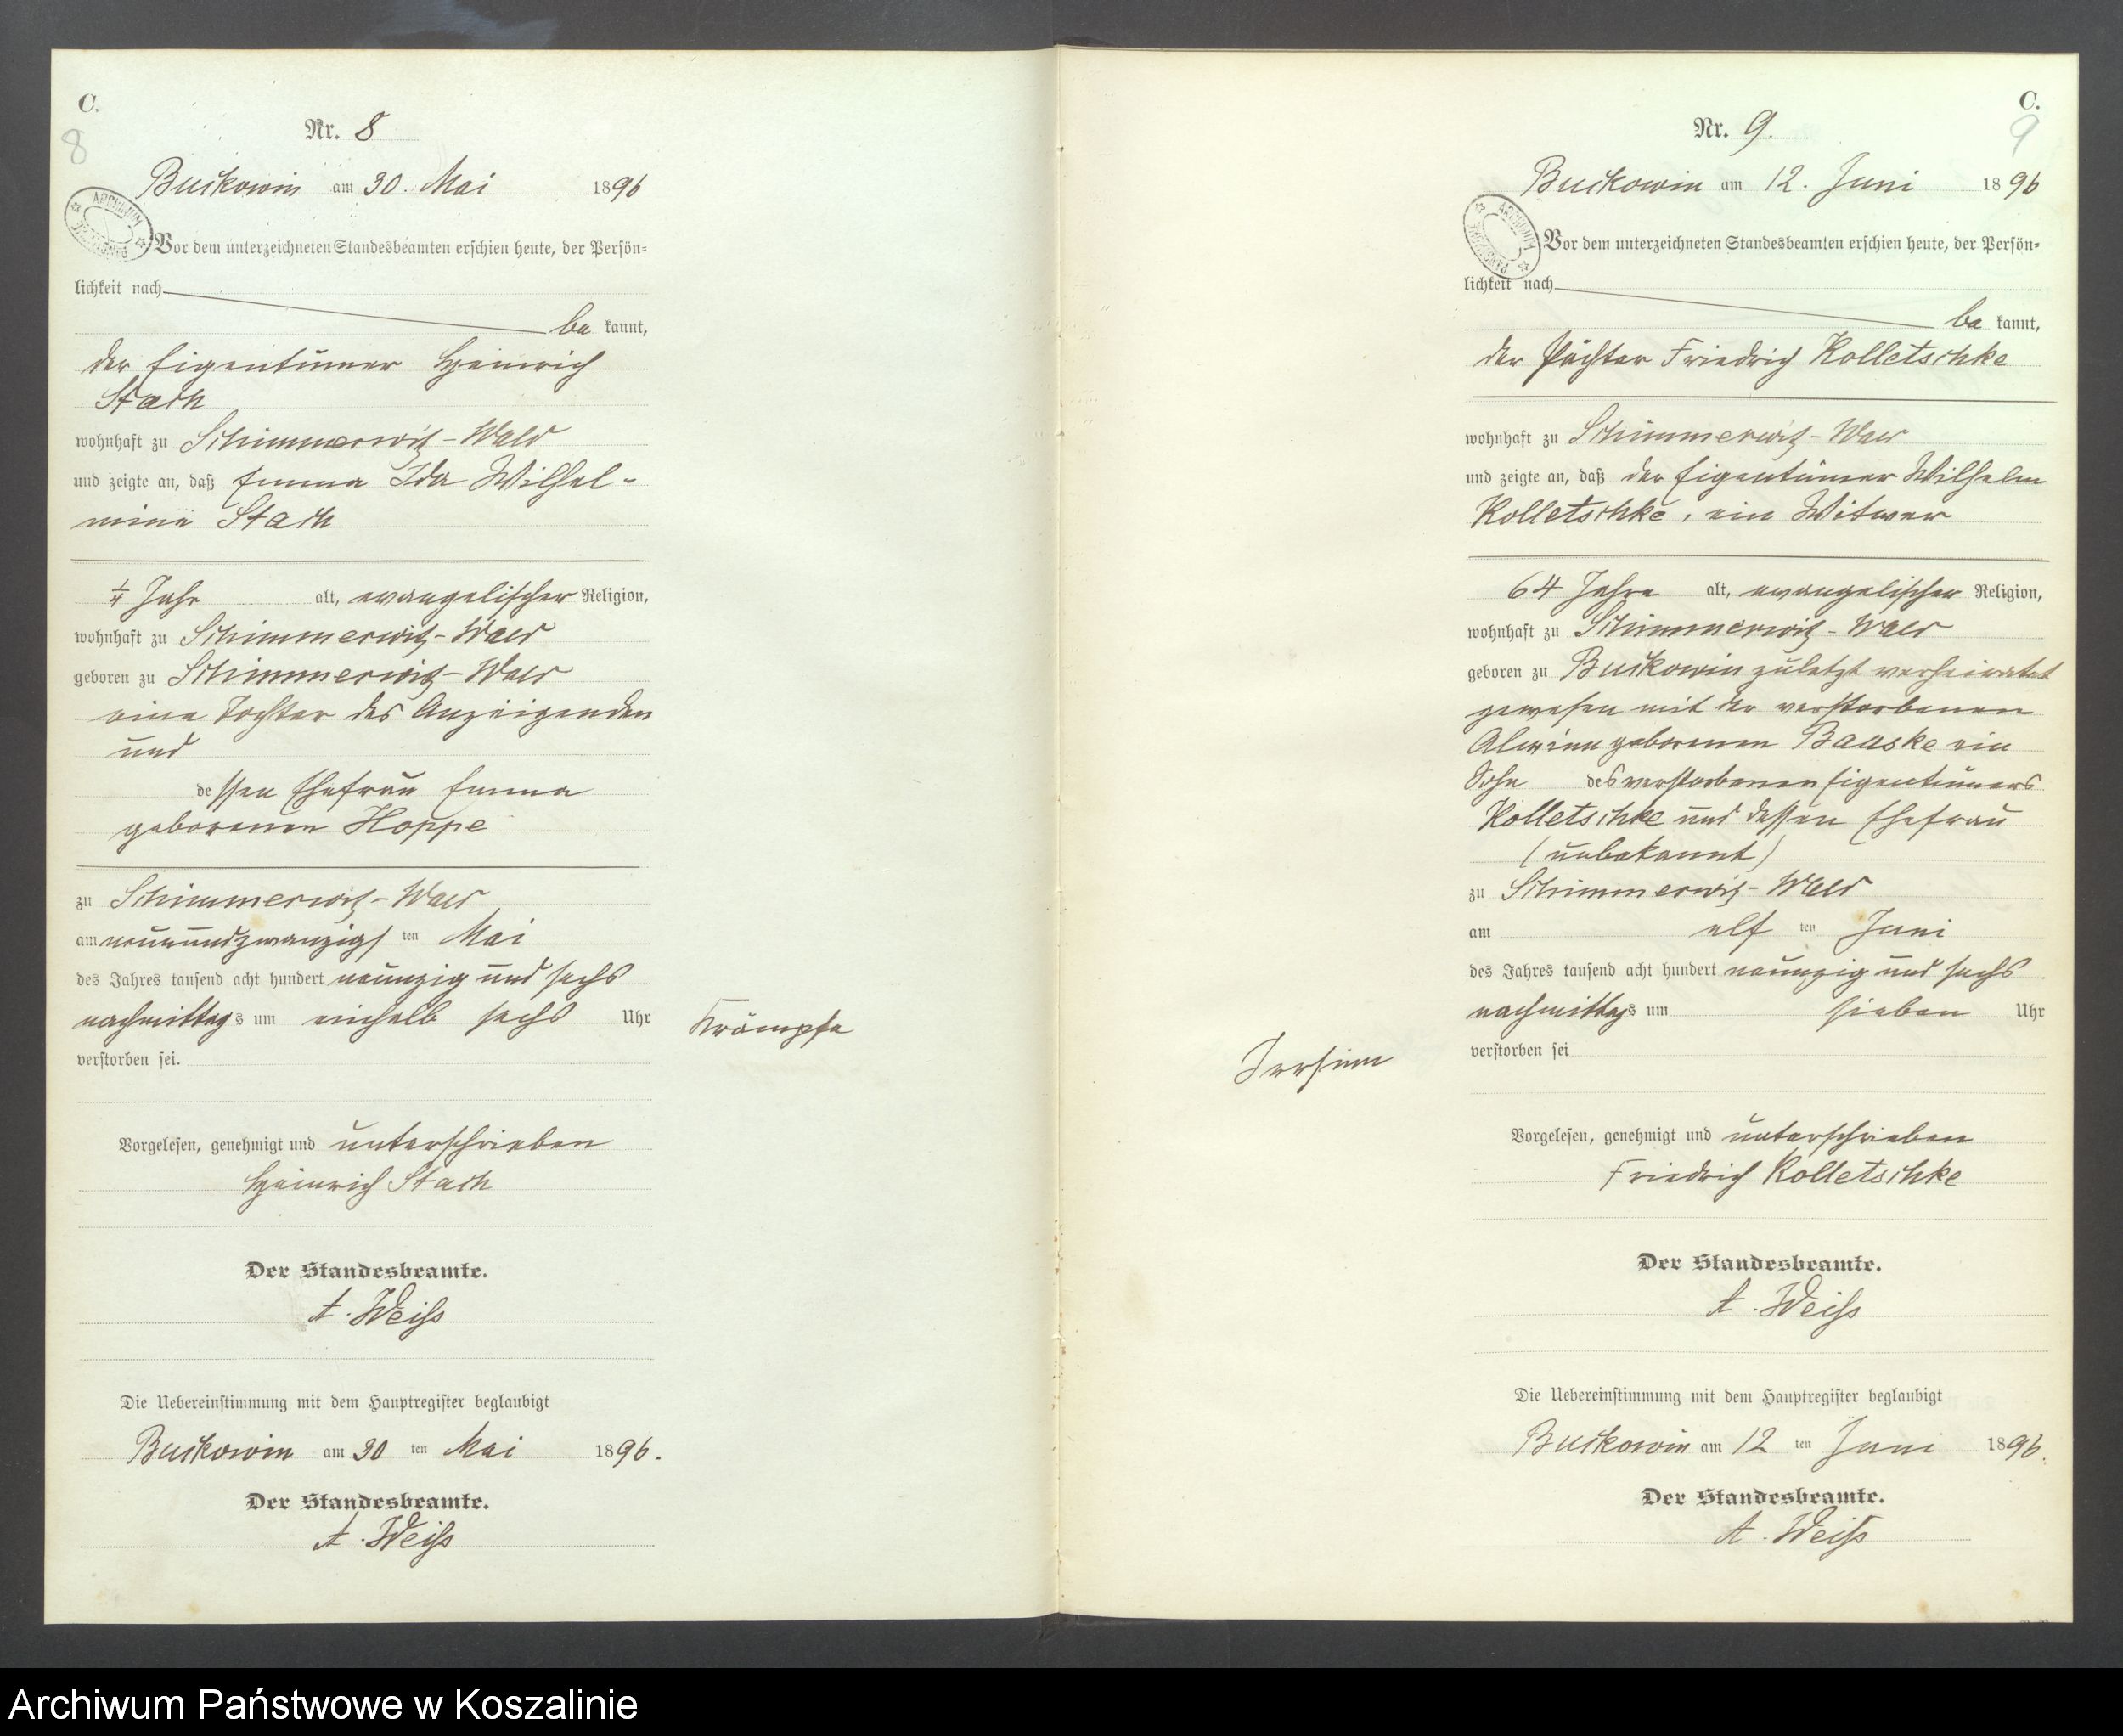 C.
8
Nr. 8
Buckowin am 30. Mai 1896
ARCHIWUM
Vor dem unterzeichneten Standesbeamten erschien heute, der Persön=
lichkeit nach
be kannt,
der Eigentümer Heinrich
Stach
wohnhaft zu Schimmerwitz-Wald
und zeigte an, daß Emma Ida Wilhel-
mine Stach
1/4 Jahr alt, evangelischer Religion,
wohnhaft zu Schimmerwitz-Wald
geboren zu Schimmerwitz-Wald
eine Tochter des Anzeigenden
und
de ssen Ehefrau Emma
geborenen Hoppe
zu Schimmerwitz-Wald
am neunundzwanzigs ten Mai
des Jahres tausend acht hundert neunzig und sechs
nachmittags um einhalb sechs Uhr
Krämpfe
verstorben sei.
Vorgelesen, genehmigt und unterschrieben
Heinrich Stach
Der Standesbeamte.
A. Weiß
Die Uebereinstimmung mit dem Hauptregister beglaubigt
Buckowin am 30 ten Mai 1896.
Der Standesbeamte.
A. Weiß
C.
9
Nr. 9.
Buckowin am 12. Juni 1896
ARCHIWUM
Vor dem unterzeichneten Standesbeamten erschien heute, der Persön=
lichkeit nach
be kannt,
der Pächter Friedrich Kolletschke
wohnhaft zu Schimmerwitz-Wald
und zeigte an, daß der Eigentümer Wilhelm
Kolletschke, ein Witwer
64 Jahre alt, evangelischer Religion,
wohnhaft zu Schimmerwitz-Wald
geboren zu Buckowin zuletzt verheiratet
gewesen mit der verstorbenen
Alwine geborenen Baaske ein
Sohn des verstorbenen Eigentümers
Kolletschke und dessen Ehefrau
(unbekannt)
zu Schimmerwitz-Wald
am elf ten Juni
des Jahres tausend acht hundert neunzig und sechs
nachmittags um sieben Uhr
verstorben sei
Irrsinn
Vorgelesen, genehmigt und unterschrieben
Friedrich Kolletschke
Der Standesbeamte.
A. Weiß
Die Uebereinstimmung mit dem Hauptregister beglaubigt
Buckowin am 12 ten Juni 1896.
Der Standesbeamte.
A. Weiß
Archiwum Państwowe w Koszalinie